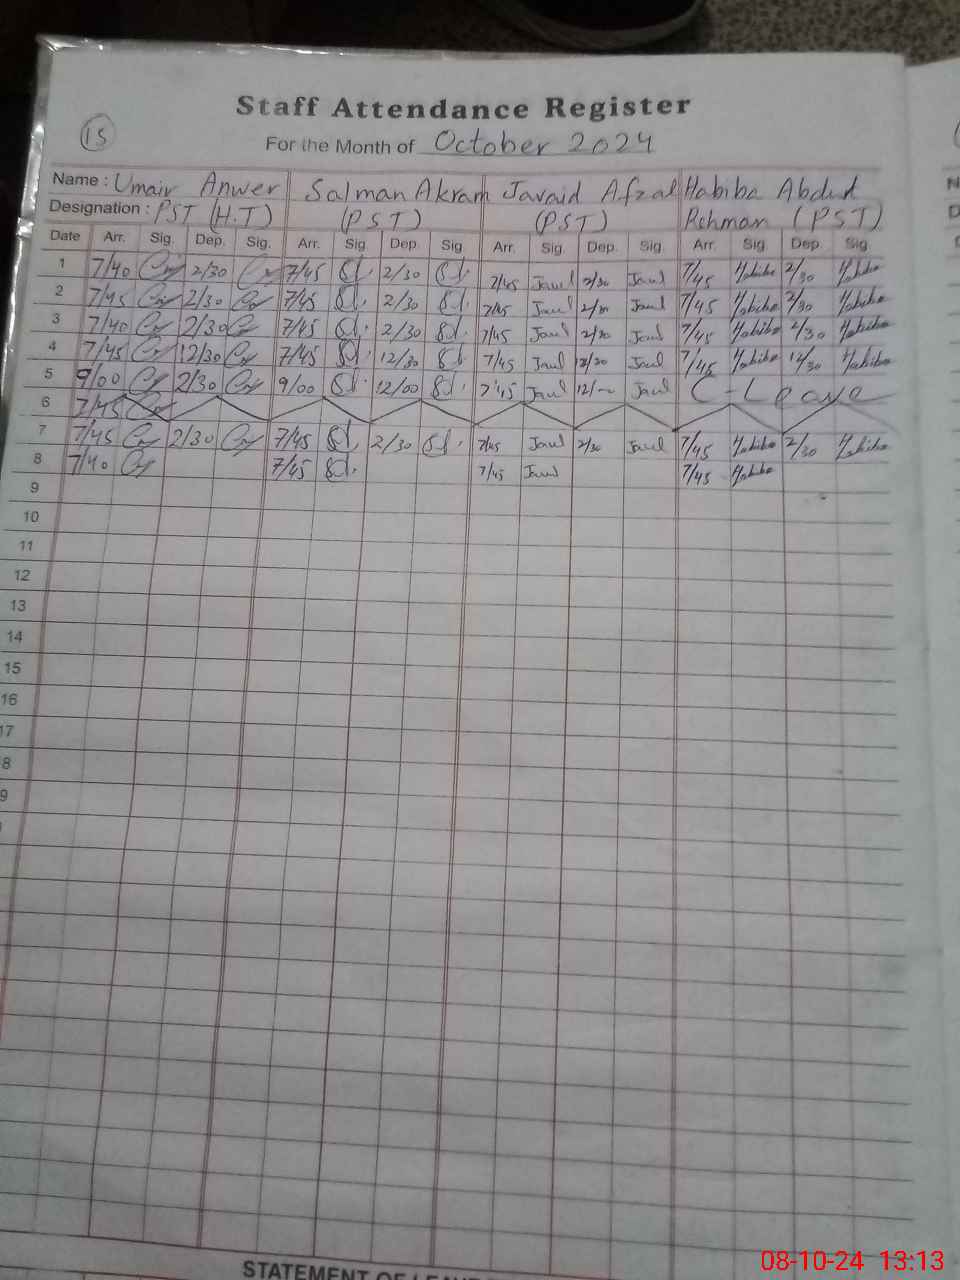 Staff Attendance Register
15
For the Month of October 2024
Name : Umair Anwer Salman Akram Javaid Afzal Habiba Abdul
Designation : PST (H.T) (PST) (PST) Rehman (PST)
Date Arr. Sig. Dep. Sig. Arr. Sig. Dep. Sig. Arr. Sig. Dep. Sig. Arr. Sig. Dep. Sig.
1 7/40 2/30 7/45 Sd. 2/30 Sd. 7/45 2/30 7/45 Habiba 2/30 Habiba
2 7/45 2/30 7/45 Sd. 2/30 Sd. 7/45 2/30 7/45 Habiba 2/30 Habiba
3 7/40 2/30 7/45 Sd. 2/30 Sd. 7/45 2/30 7/45 Habiba 2/30 Habiba
4 7/45 12/30 7/45 Sd. 12/30 Sd. 7/45 12/30 7/45 Habiba 12/30 Habiba
5 9/00 2/30 9/00 Sd. 12/00 Sd. 7:45 C-Leave
6 7/45
7 7/45 2/30 7/45 Sd. 2/30 Sd. 7/45 2/30 7/45 Habiba 2/30 Habiba
8 7/40 7/45 Sd. 7/45 7/45 Habiba
9
10
11
12
13
14
15
16
17
8
9
STATEMENT OF LEAVE
08-10-24 13:13